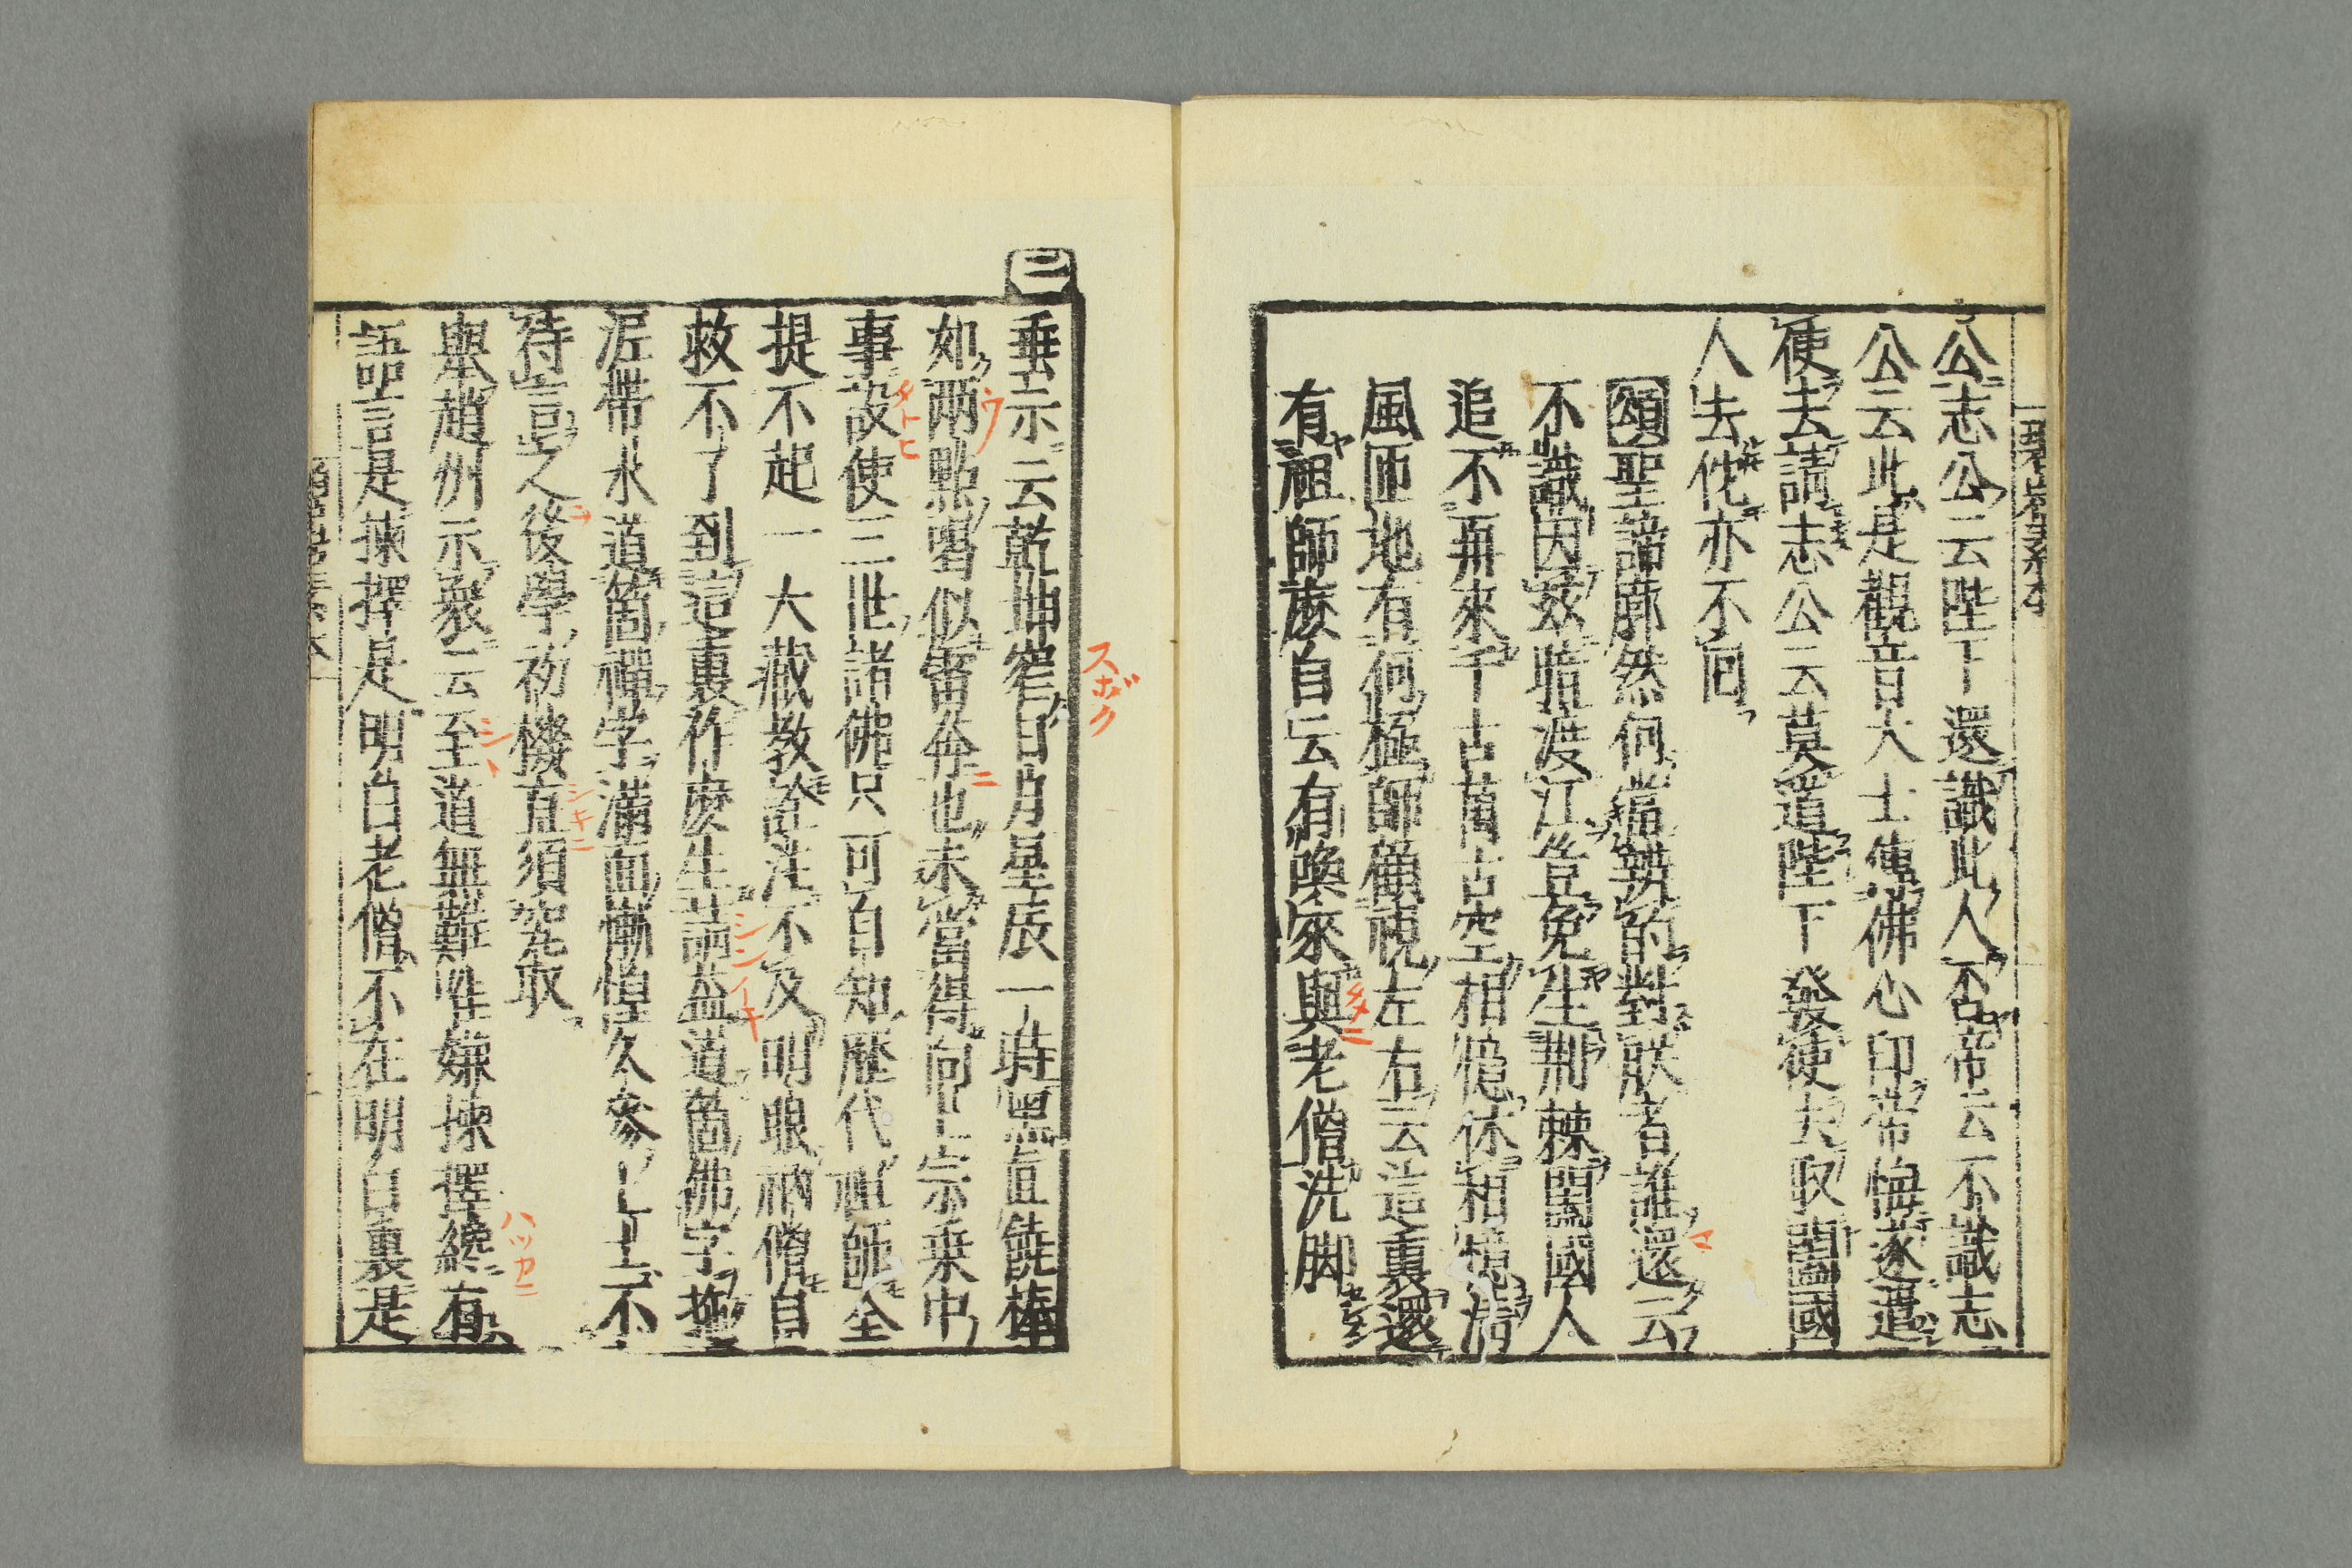 公志公云陛下還識此人否帝云不識志
公云此是觀音大士傳佛心印帝悔遂遣
使去請志公云莫道陛下發使去取闔國
人去佗亦不回
頌聖諦廓然何當辨的對朕者誰還云
不識因茲暗渡江豈免生荊棘闔國人
追不再來千古萬古空相憶休相憶清
風匝地有何極師顧視左右云這裏還
有祖師麼自云有喚來與老僧洗脚
タメニ
マ
二
垂示云乾坤窄日月星辰一時黑直饒棒
スボク
如雨點喝似雷奔也未當得向上宗乗中
事設使三世諸佛只可自知歷代祖師全
提不起一大藏教詮注不及明眼衲僧自
救不了到這裏作麼生請益道箇佛字拖
泥帶水道箇禪字滿面慚惶久參上士不
待言之後學初機直須究取
擧趙州示衆云至道無難唯嫌揀擇纔有
語言是揀擇是明白老僧不在明白裏是